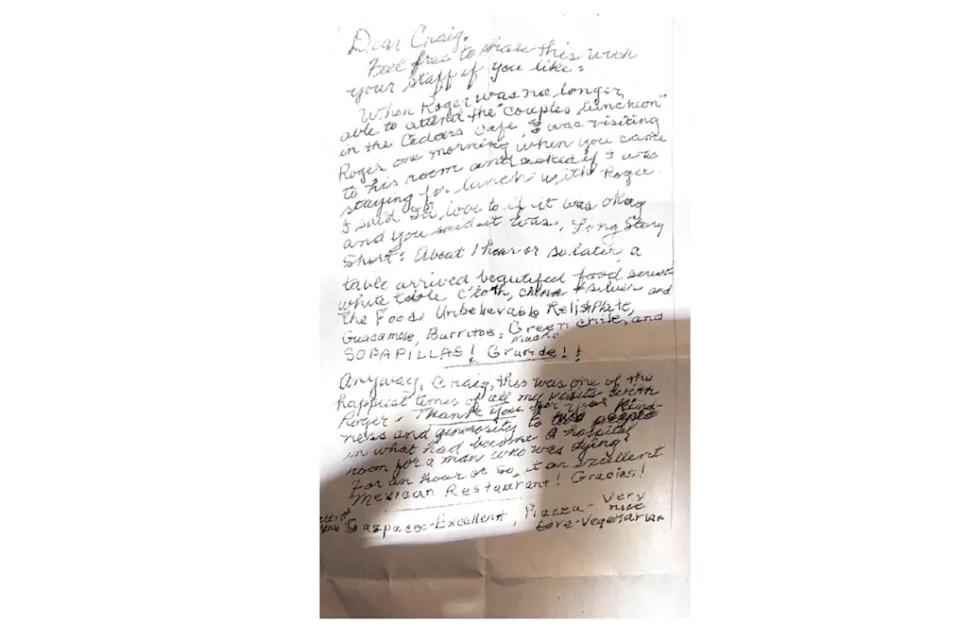 Dear Craig,
Feel free to share this with
your staff if you like:
When Roger was no longer
able to attend the "couples luncheon"
in the Cedars Cafe, I was visiting
Roger one morning when you came
to his room and asked if I was
staying for lunch with Roger.
I said I'd love to if it was okay
and you said it was. Long Story
Short: About 1 hour or so later a
table arrived beautiful food
white table cloth, china + silver and
the Food: Unbelievable Relish Plate,
Guacamole, Burritos, Green Chile, and
SOPAPILLAS! Grande!!
Anyway, Craig, this was one of the
happiest times of all my visits with
Roger. Thank you for your kind-
ness and generosity to two people
in what had become a hospital
room for a man who was dying!
For an hour or so, it an excellent
Mexican Restaurant! Gracias!
Gazpacho-Excellent, Piazza- Very
nice
Vegetarian